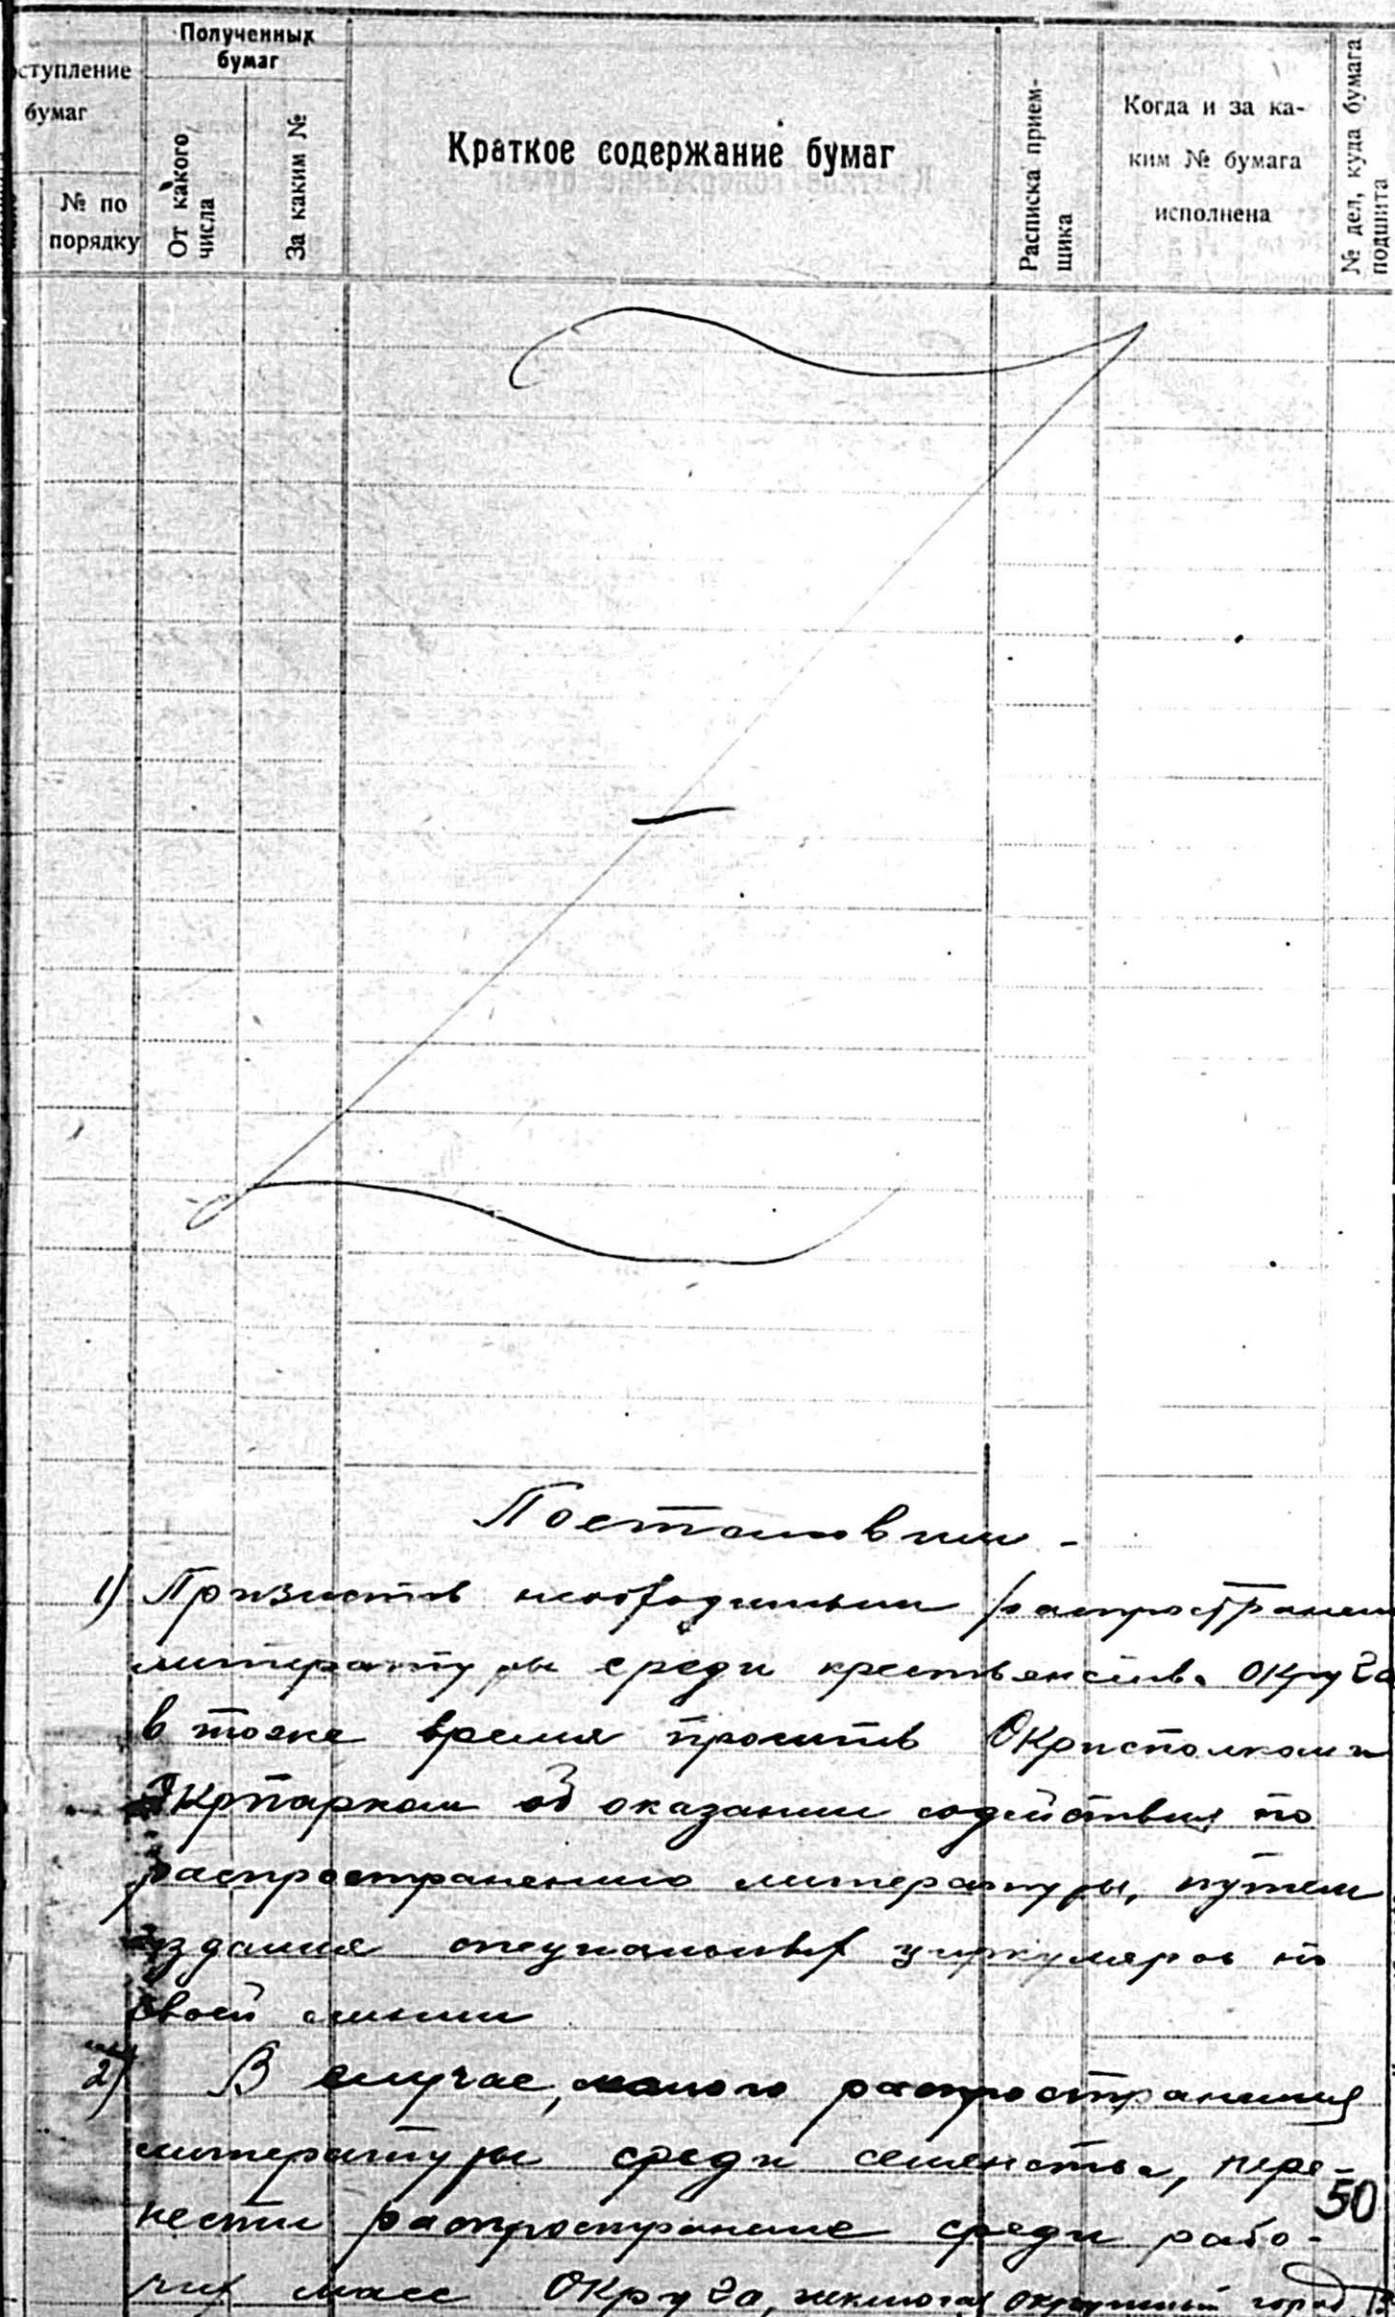 ступление
бумаг
№ по
порядку
Полученных
бумаг
От какого
числа
За каким №
Краткое содержание бумаг
Расписка прием-
щика
Когда и за ка-
ким № бумага
исполнена
№ дел, куда бумага
подшита
Постановили -
1) Признать необходимым распространен
литературы среди крестьянства округа
в тоже время просить Окрисполком и
Окрпарком об оказании содействия по
распространению литературы, путем
издания специальных циркуляров по
своей линии
2) В случае, малого распространения
литературы среди селянства, пере-
нести распространение среди рабо-
50
чих масс Округа, включая окружный город